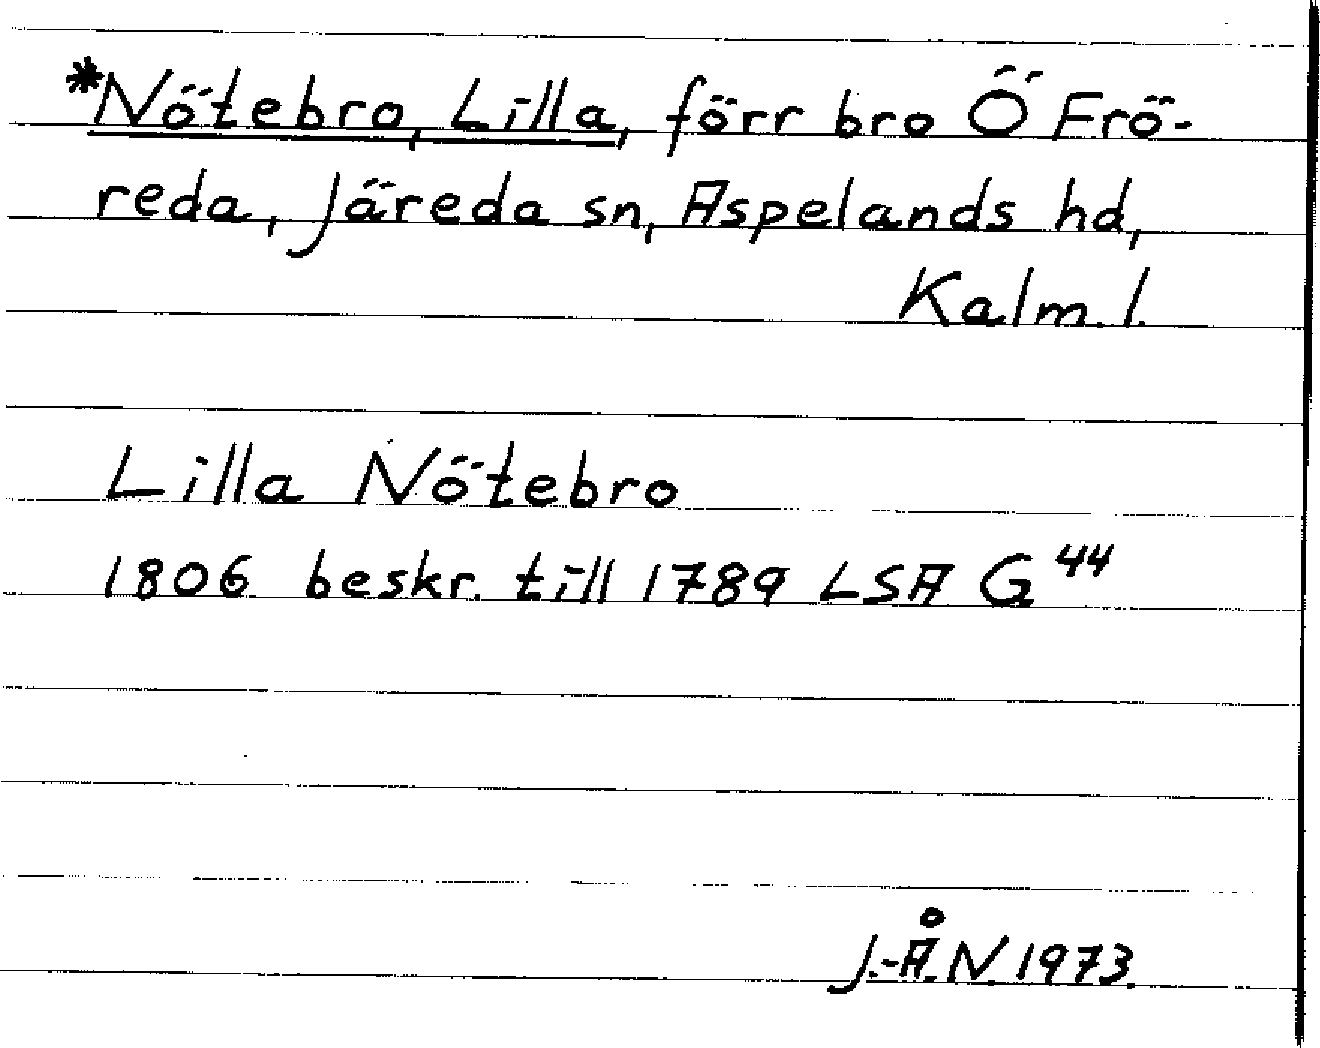 *Nötebro, Lilla, förr bro Ö Frö-
reda, Järeda sn, Aspelands hd,
Kalm. l.
Lilla Nötebro
1806 beskr. till 1789 LSA G 44
J.-Å. N. 1973.